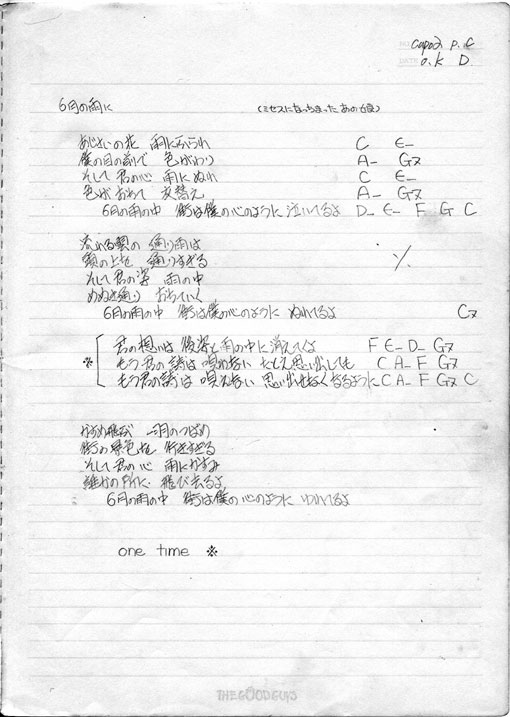 capo2 P. C
DATE o.k D
6月の雨に (ミセスになっちまったあの娘)
あじさいの花 雨にふられ C E-
僕の目の前で 色がわり A- G7
そして君の心 雨にぬれ C E-
色があわて 衣替え A- G7
6月の雨の中 街は僕の心のように 泣いてるよ D- E- F G C
流れる雲の 通り雨は
頭の上を 通りすぎる
そして君の姿 雨の中
めぬき通り おちていく
6月の雨の中 街は僕の心のように ぬれてるよ C7
君の想いは 後姿と雨の中に消えてくよ F E- D- G7
※ もう君の詩は 唄わない たとえ思い出しても C A- F G7
もう君の詩は 唄えない 思い出せなくなるように C A- F G7 C
かすめ飛び 一羽のつばめ
街の景色を 行きすぎる
そして君の心 雨にかすみ
誰かの内に 飛び去るよ
6月の雨の中 街は僕の心のように われてるよ
one time ※
THE GOOD GUYS